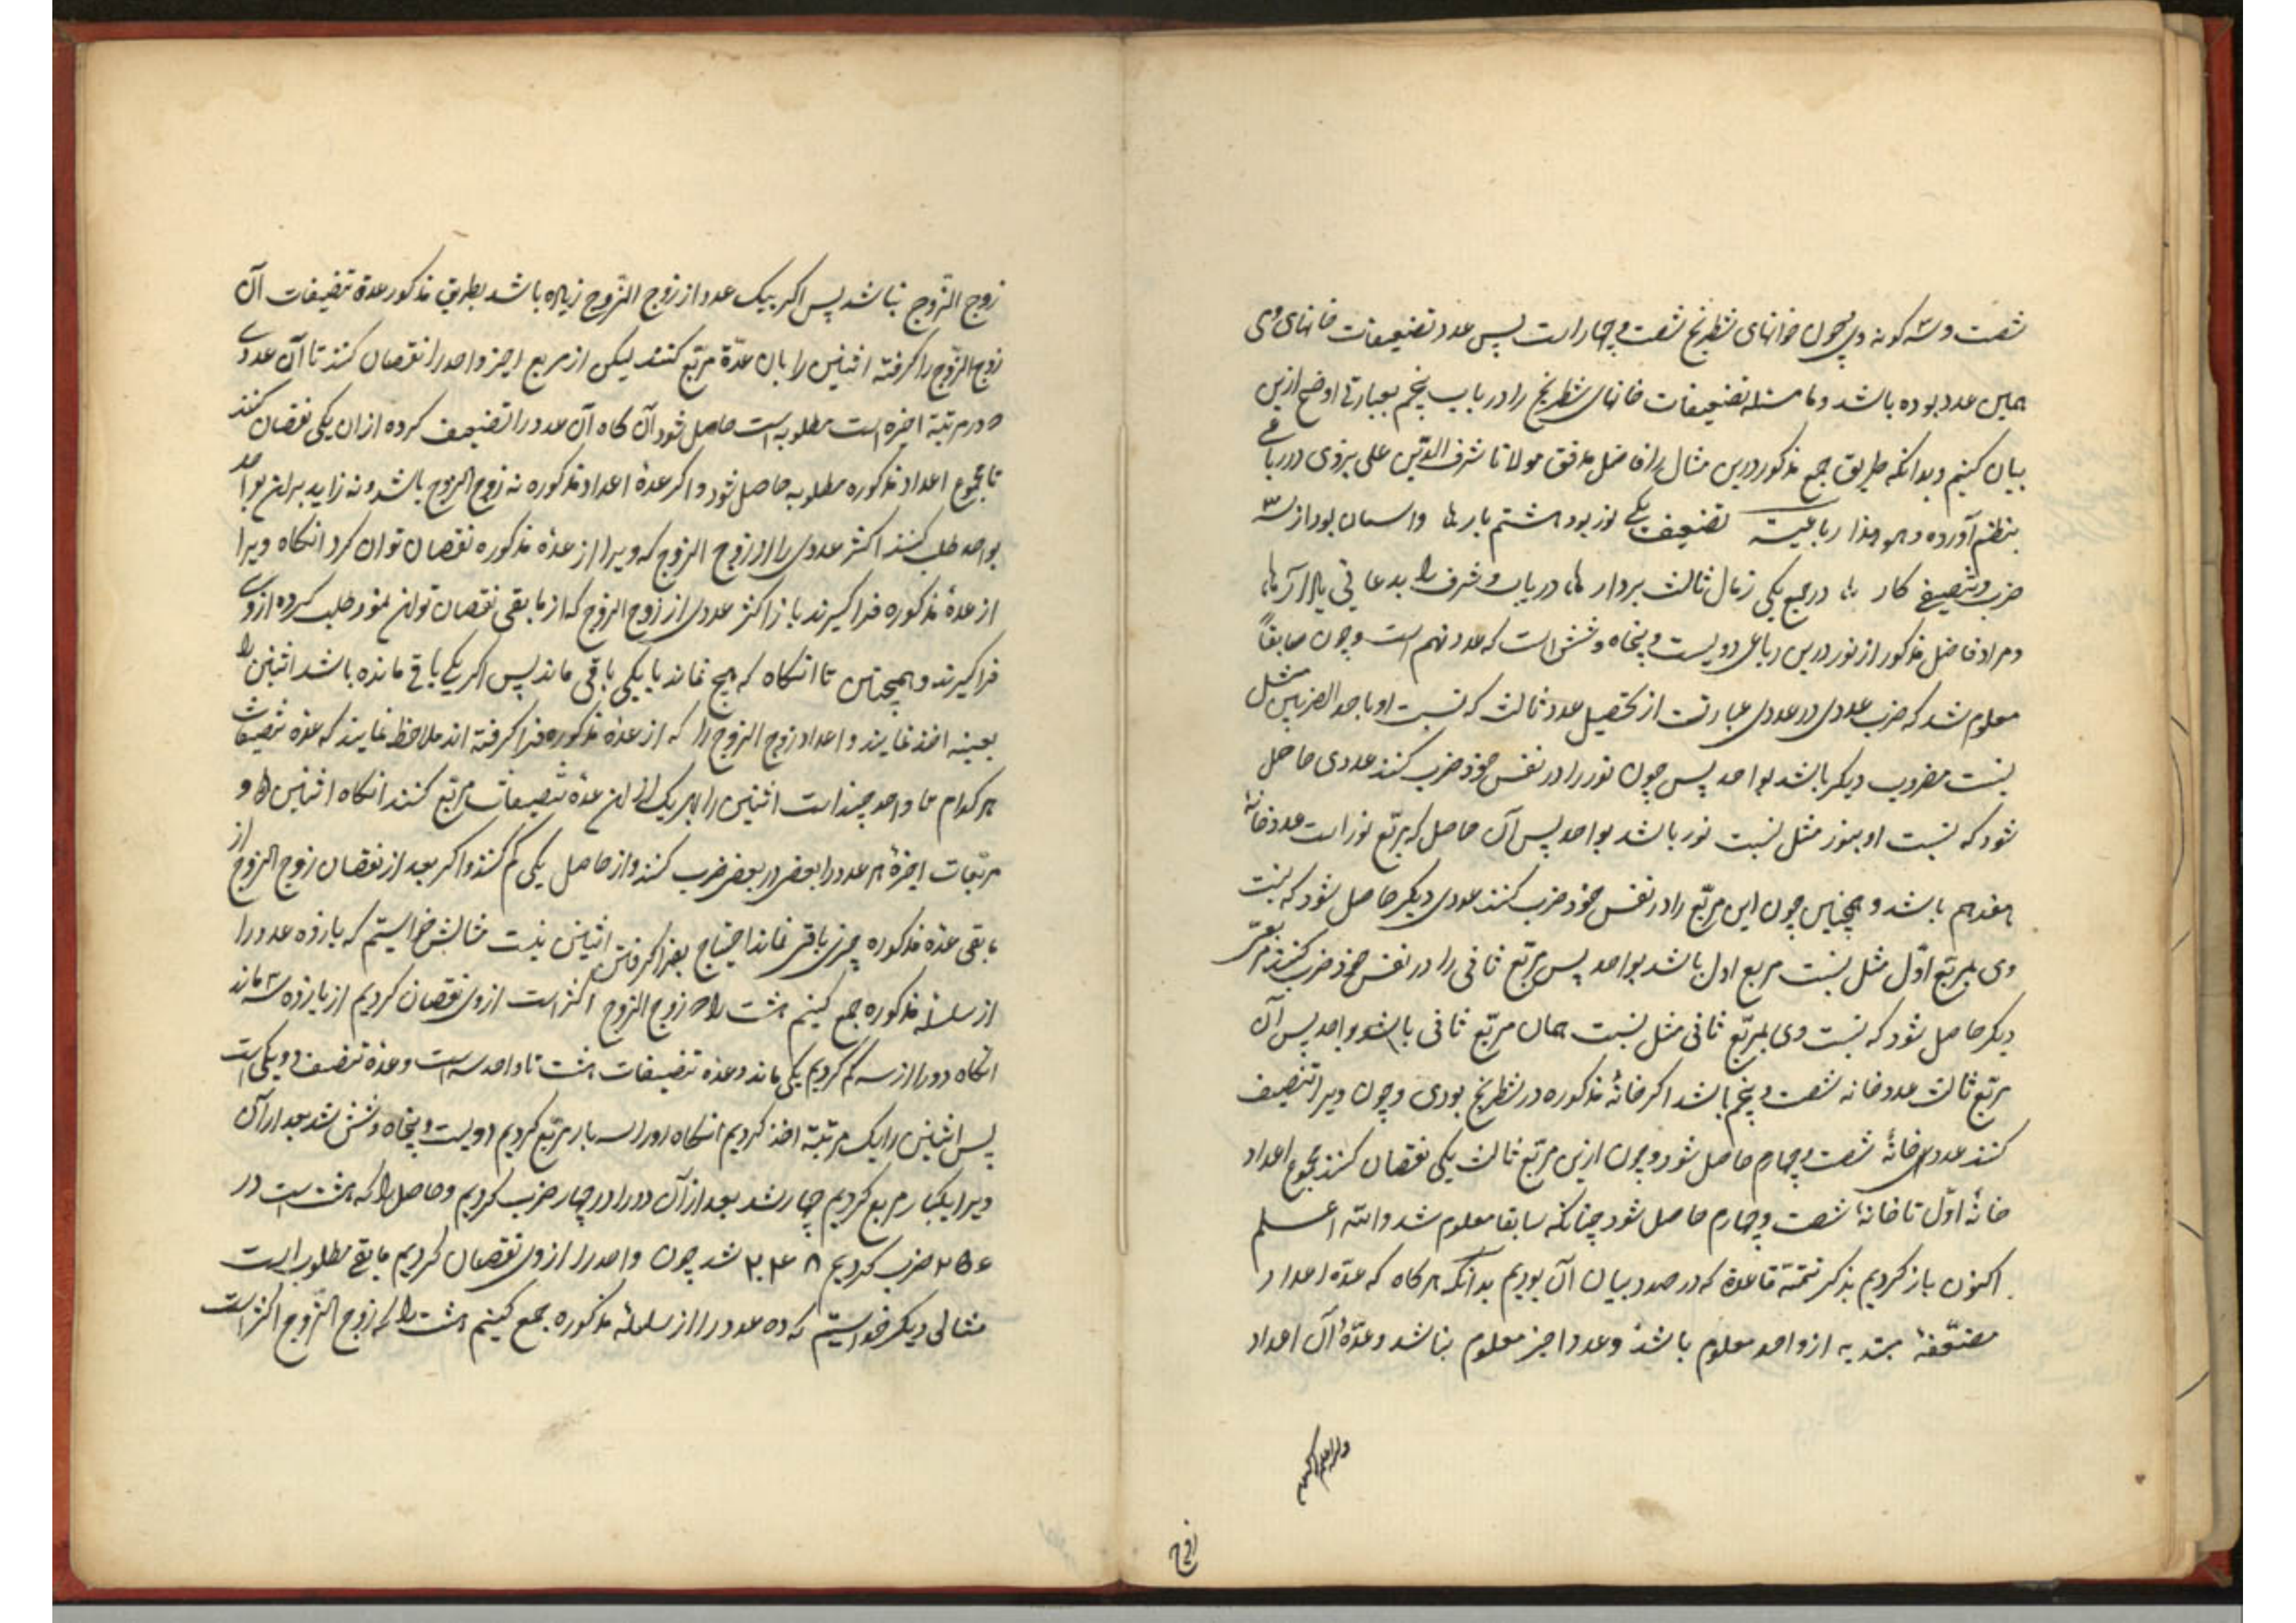 شصت و سه کونه وی و چون خوانهای شطرنج شصت و چهار است پس عدد تضعیفات خانهای وی
همین عدد بوده باشد و ما مسئله تضعیفات خانهای شطرنج را در باب پنجم بعبارتی اوضح ازین
بیان کنیم و بدانکه طریق جمع مذکور درین مثال را فاضل مدقق مولانا شرف الدین علی یزدی در رباعی
بنظم آورده و هو هذا رباعیة تضعیف یکی نوز بود هشتم بار بود از سه
ضرب و تضعیف کار در جمع یکی ز مال ثالث بردار دریاب و شرف را بدعا
و مراد فاضل مذکور از نور درین رباعی دویست و پنجاه و شش است که عدد نهم است و چون سابقاً
معلوم شد که ضرب عددی در عددی عبارتست از تحصیل عدد ثالث که نسبت او باحد المضربین مثل
نسبت مضروب دیکر باشد بواحد پس چون نور را در نفس خود ضرب کنند عددی حاصل
شود که نسبت او بنور مثل نسبت نور باشد بواحد پس آن حاصل که مربع نور است عدد خانهٔ
هفدهم باشد و همچنین چون این مربّع را در نفس خود ضرب کنند عددی دیکر حاصل شود که نسبت
وی بمربّع اوّل مثل نسبت مربع اول باشد بواحد پس مربّع ثانی را در نفس خود ضرب کنند مربّعی
دیکر حاصل شود که نسبت وی بمربّع ثانی مثل نسبت همان مربّع ثانی باشد بواحد پس آن
مربّع ثالث عدد خانه شصت و پنجم باشد اکر خانهٔ مذکوره در شطرنج بودی و چون ویرا تنصیف
کنند عدد خانهٔ شصت و چهارم حاصل شود و چون ازین مربّع ثالث یکی نقصان کنند مجموع اعداد
خانهٔ اوّل تا خانهٔ شصت و چهارم حاصل شود چنانکه سابقا معلوم شد و الله اعلم
اکنون باز کردیم بذکر تتمّة قاعدة که در صدد بیان آن بودیم بدانکه هرکاه که عدّه اعداد
مضعّفهٔ مبتدیه از واحد معلوم باشد و عدد اخیر معلوم نباشد و عدّهٔ آن اعداد
زوج
زوج الزّوج نباشد پس اکر بیک عدد از زوج الزّوج زیاده باشد بطریق مذکور عدة تنصیفات آن
زوج الزّوج را کرفته اثنین را بآن عدّة مربّع کنند لیکن از مربع اخیر واحد را نقصان کنند تا آن عددی
که در مرتبهٔ اخیره است مطلوبه است حاصل شود آن کاه آن عدد را تضعیف کرده از ان یکی نقصان کنند
تا مجموع اعداد مذکوره مطلوبه حاصل شود و اکر عدة اعداد مذکوره نه زوج الزوج باشد و نه زاید بر ان بواحد
بواحد طلب کنند اکثر عددی را از زوج الزوج که ویرا از عدة مذکوره نقصان توان کرد انکاه ویرا
از عدة مذکوره فرا کیرند باز اکثر عددی از زوج الزوج که از مابقی نقصان توان نمود طلب کرده از وی
فرا کیرند و همچنین تا انکاه که هیچ نماند یا یکی باقی ماند پس اکر یکی باقی مانده باشد اثنین را
بعینه اخذ نمایند و اعداد زوج الزوج را که از عدة مذکوره فرا کرفته اند ملاحظه نمایند که عدة تنصیفات
هر کدام تا واحد چند است اثنین را بهر یک از ان عدة تنصیفات مربّع کنند انکاه اثنین را و
مربّعات اخیرهٔ هر عدد را بعضی در بعضی ضرب کنند و از حاصل یکی کم کنند و اکر بعد از نقصان زوج الزوج از
مابقی عدة مذکوره چیزی باقی نماند احتیاج بفرا کرفتن اثنین نیست مثالش خواستیم که یازده عدد را
از سلسلهٔ مذکوره جمع کنیم هشت را که زوج الزوج اکثر است از وی نقصان کردیم از یازده سه ماند
انکاه دو را از سه کم کردیم یکی ماند و عدة تنصیفات هشت تا واحد سه است و عدة تنصیف دو یکی است
پس اثنین را یک مرتبة اخذ کردیم انکاه او را سه بار مربّع کردیم دویست و پنجاه و شش شد بعد از آن
ویرا یکبار مربع کردیم چهار شد بعد از آن دو را در چهار ضرب کردیم و حاصل را که هشت است در
۲۵۶ ضرب کردیم ۲۰۴۸ شد چون واحد را از وی نقصان کردیم مابقی مطلوب است
مثالی دیکر خواستیم که ده عدد را از سلسلهٔ مذکوره جمع کنیم هشت را که زوج الزّوج اکثر است